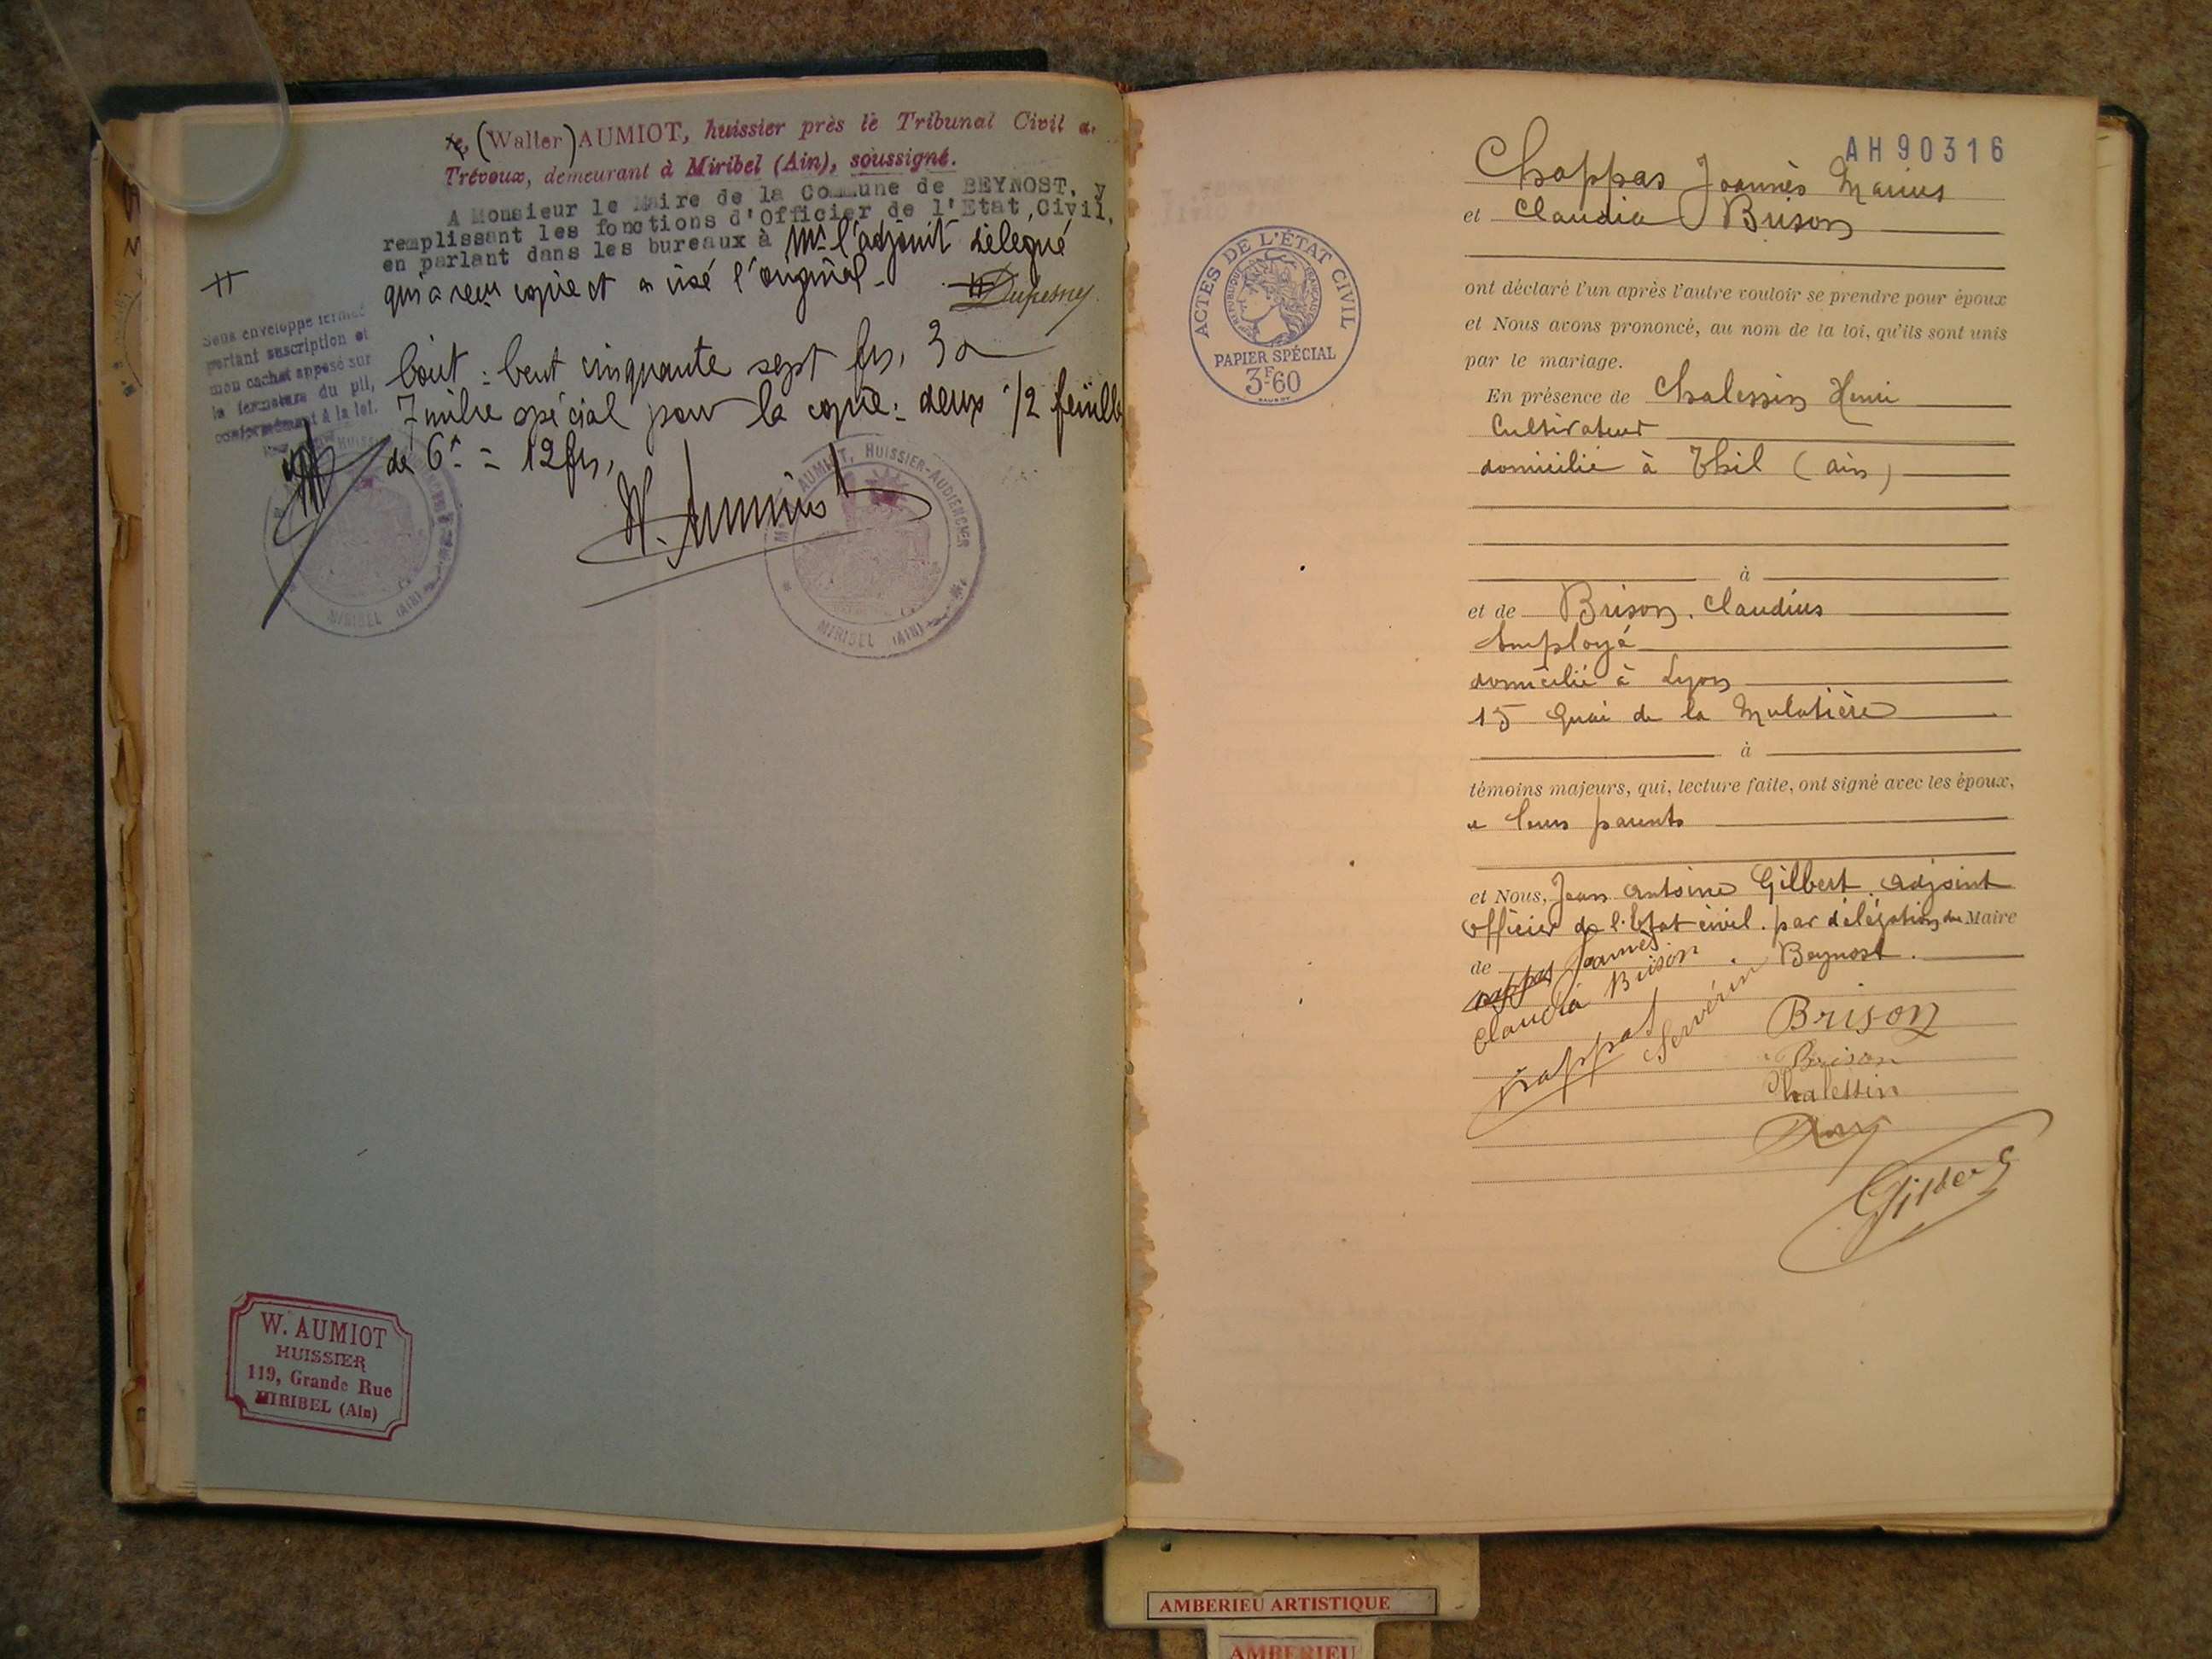 (Walter) AUMIOT, huissier près le Tribunal Civil de
Trévoux, demeurant à Miribel (Ain), soussigné.
A Monsieur le Maire de la Commune de BEYNOST, y
remplissant les fonctions d'Officier de l'Etat Civil,
en parlant dans les bureaux à Mr l'adjoint délégué
qui a reçu copie et a visé l'original.
Sous enveloppe fermée
portant suscription et
mon cachet apposé sur
la fermeture du pli,
conformément à la loi.
Coût : Cent cinquante sept frs,
Timbre spécial pour la copie : deux 1/2 feuilles
de 6f = 12 frs,
W. Aumiot
Me AUMIOT, HUISSIER-AUDIENCIER
MIRIBEL (AIN)
HUISSIER
MIRIBEL (AIN)
W. AUMIOT
HUISSIER
119, Grande Rue
MIRIBEL (Ain)
AH 90316
ACTES DE L'ÉTAT CIVIL
RÉPUBLIQUE FRANÇAISE
PAPIER SPÉCIAL
3F60
Chappas Joannès Marius
et Claudia Brison
ont déclaré l'un après l'autre vouloir se prendre pour époux
et Nous avons prononcé, au nom de la loi, qu'ils sont unis
par le mariage.
En présence de Chalessin Henri
Cultivateur
domicilié à Thil (ain)
à
et de Brison. Claudius
Employé
domicilié à Lyon
15 Quai de la Mulatière
à
témoins majeurs, qui, lecture faite, ont signé avec les époux,
et leurs parents
et Nous, Jean Antoine Gilbert. adjoint
officier de l'Etat civil. par délégation du Maire
de Beynost.
Joannès
Claudia Brison
Brison
Brison
Chalessin
AMBERIEU ARTISTIQUE
AMBERIEU